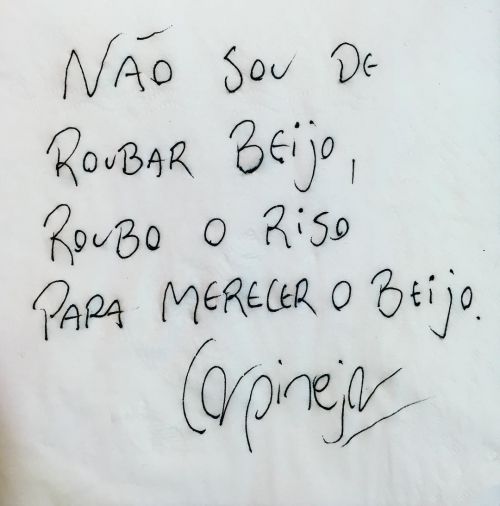 NÃO SOU DE
ROUBAR BEIJO,
ROUBO O RISO
PARA MERECER O BEIJO.
Carpinejar